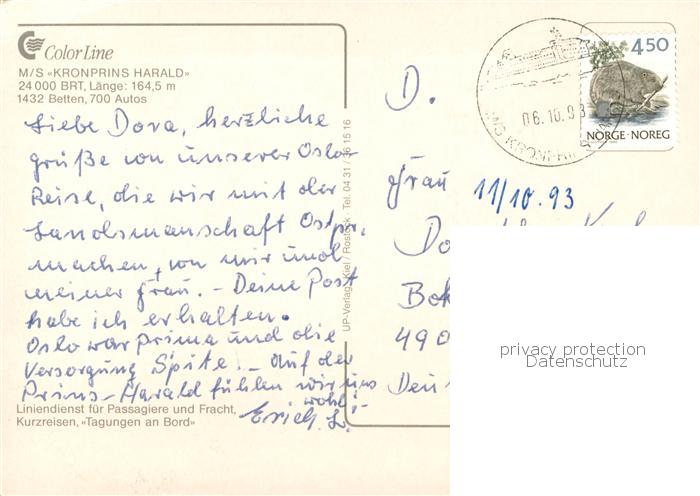 Color Line
M/S «KRONPRINS HARALD»
24 000 BRT, Länge: 164,5 m
1432 Betten, 700 Autos
Liebe Dora, herzliche
grüße von unserer Oslo-
Reise, die wir mit der
Landsmanschaft Ostpr.
machen, von mir und
meiner Frau. - Deine Post
habe ich erhalten.
Oslo war prima und die
Versorgung Spitze. - Auf der
Prins-Harald fühlen wir uns
wohl!
Erich L.
Liniendienst für Passagiere und Fracht,
Kurzreisen, «Tagungen an Bord»
UP-Verlag, Kiel / Rostock Tel. 04 31 / 36 15 16
06.10.93
M/S KRONPRINS
4.50
NORGE·NOREG
D.
11/10.93
Frau
Do
Bok
490
Deu
privacy protection
Datenschutz